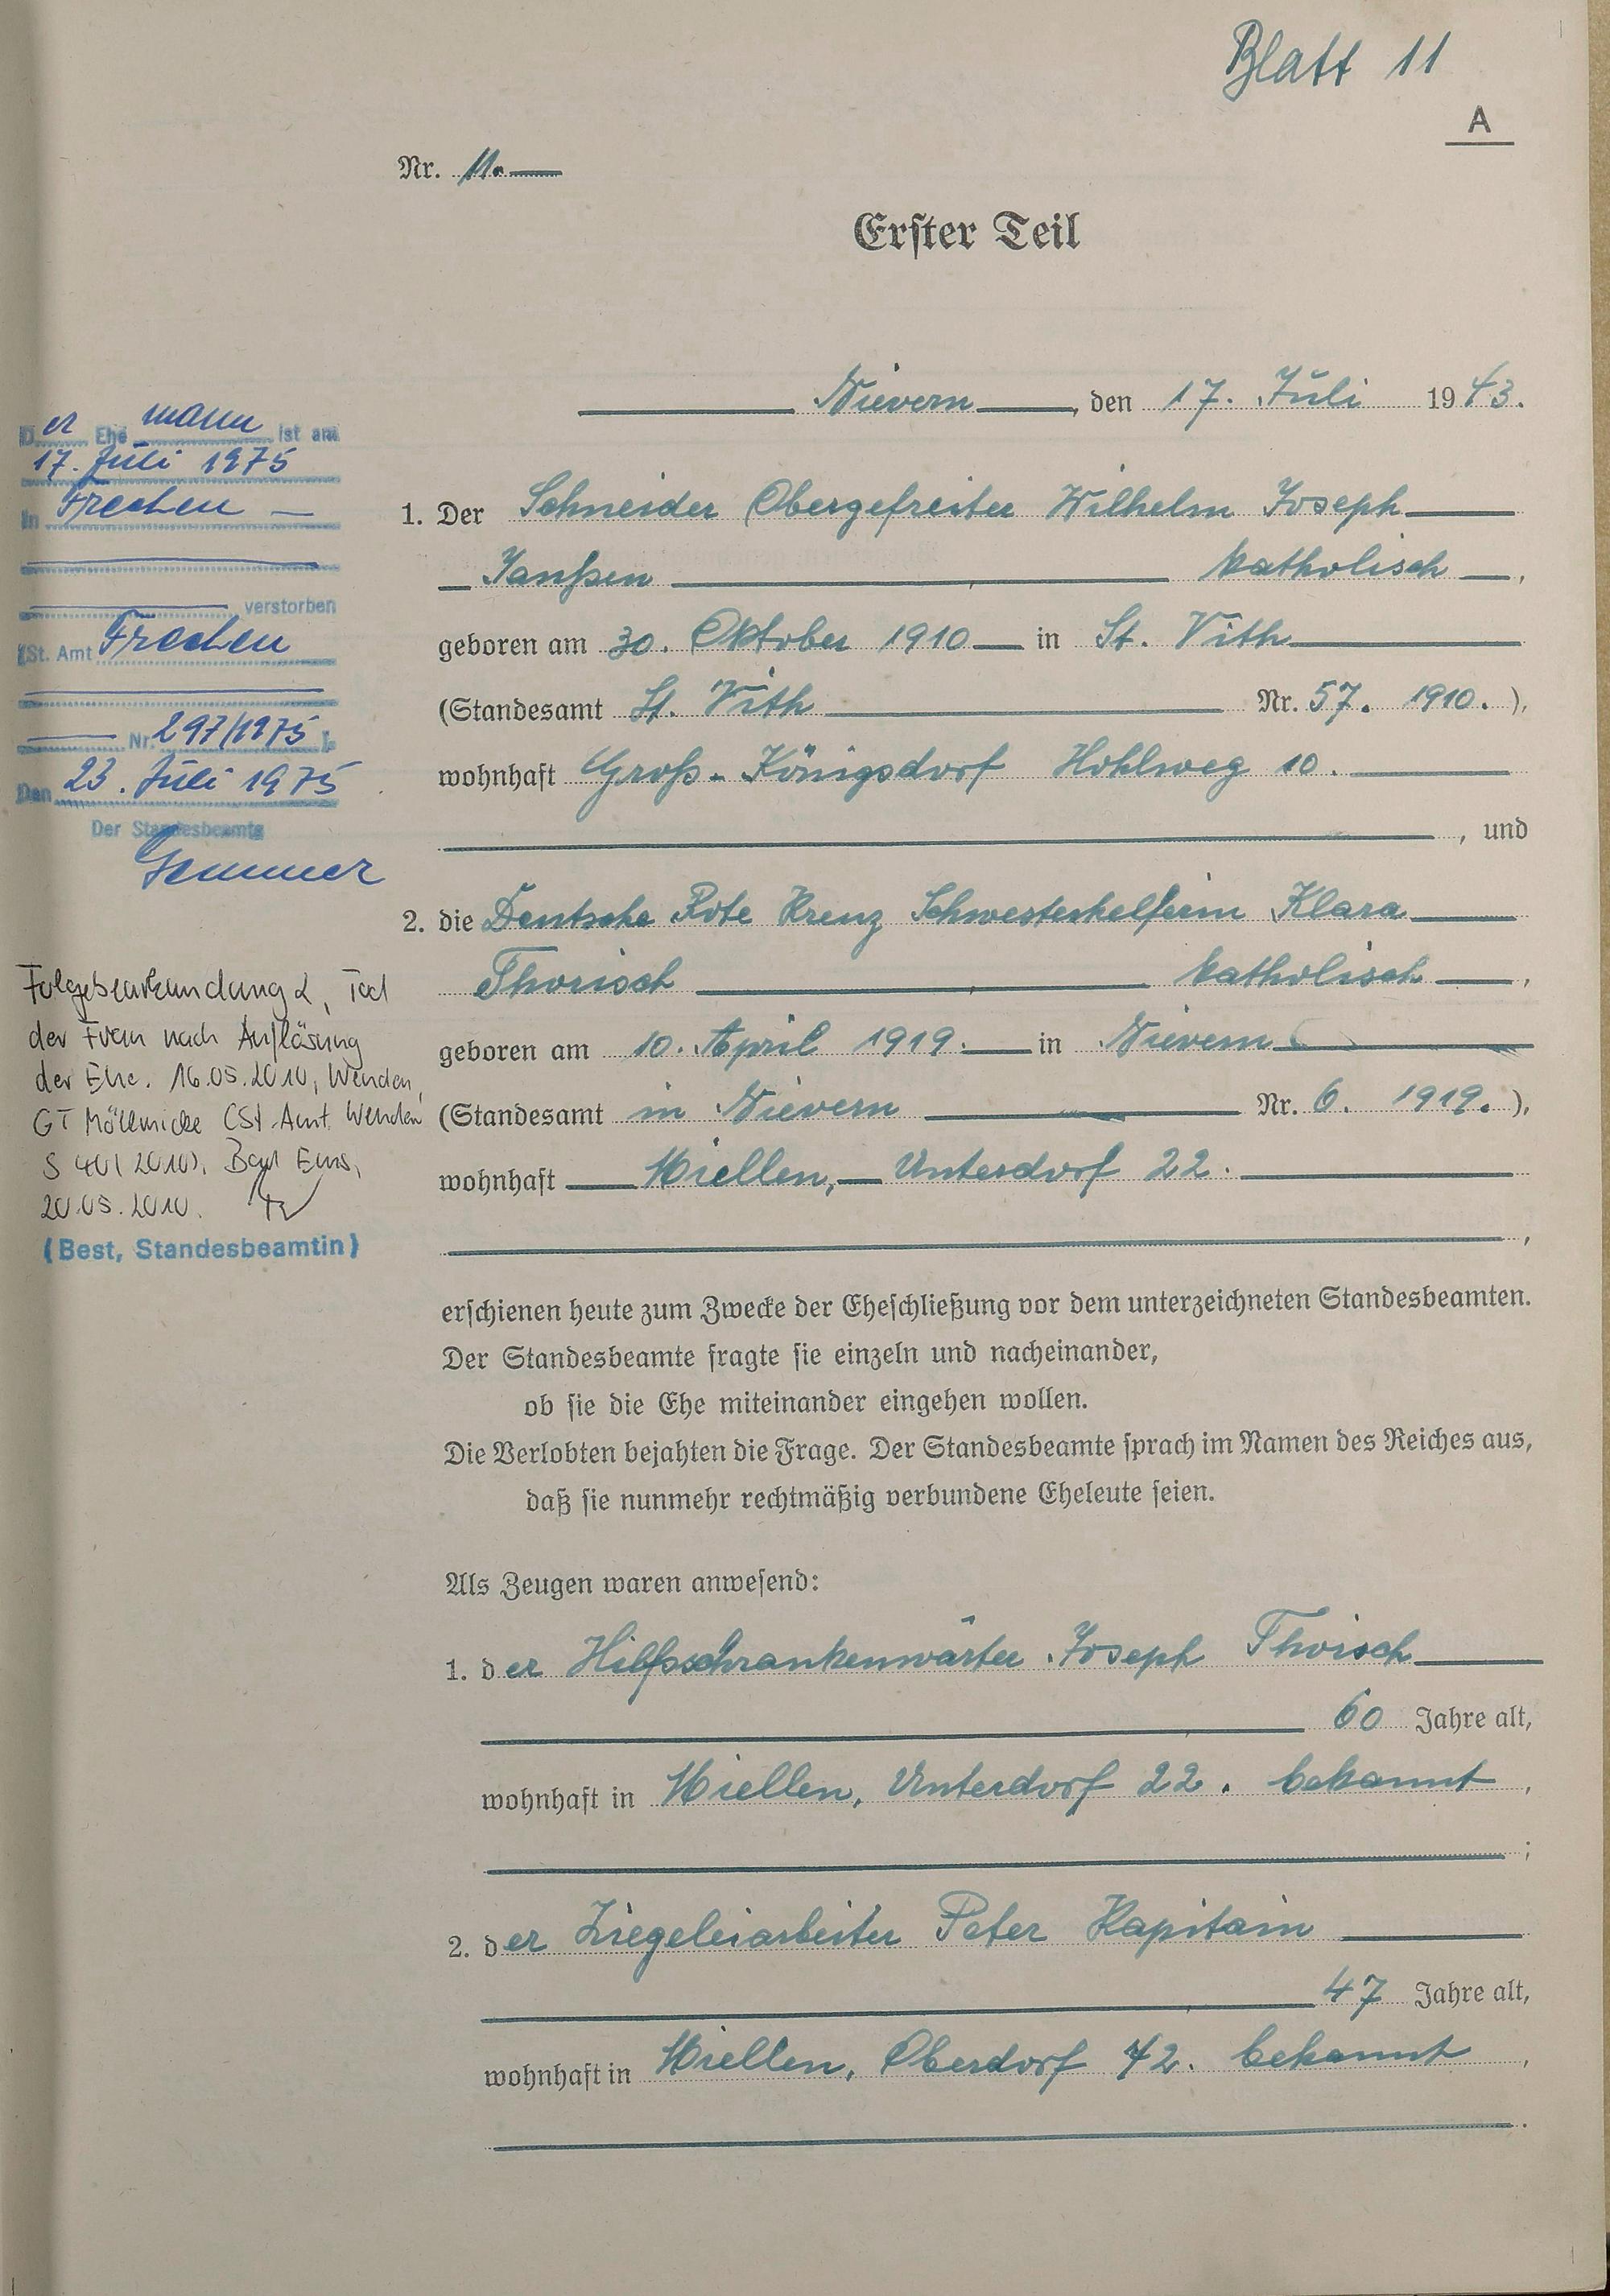 Blatt 11
A
Nr. 11.
Erster Teil
Nievern, den 17. Juli 1943.
1. Der Schneider Obergefreiter Wilhelm Joseph
Janßen katholisch,
geboren am 30. Oktober 1910 in St. Vith
(Standesamt St. Vith Nr. 57. 1910.),
wohnhaft Groß-Königsdorf Hohlweg 10.
, und
2. die Deutsche Rote Kreuz Schwesterhelferin Klara
Thorisch katholisch,
geboren am 10. April 1919. in Nievern
(Standesamt in Nievern Nr. 6. 1919.),
wohnhaft Miellen, Unterdorf 22.
,
erschienen heute zum Zwecke der Eheschließung vor dem unterzeichneten Standesbeamten.
Der Standesbeamte fragte sie einzeln und nacheinander,
ob sie die Ehe miteinander eingehen wollen.
Die Verlobten bejahten die Frage. Der Standesbeamte sprach im Namen des Reiches aus,
daß sie nunmehr rechtmäßig verbundene Eheleute seien.
Als Zeugen waren anwesend:
1. der Hilfsschrankenwärter Joseph Thorisch
60 Jahre alt,
wohnhaft in Miellen, Unterdorf 22. bekannt,
;
2. der Ziegeleiarbeiter Peter Kapitain
47 Jahre alt,
wohnhaft in Miellen, Oberdorf 42. bekannt,
.
Der Ehe mann ist am
17. Juli 1975
in Frechen
verstorben
(St. Amt Frechen
Nr. 297/1975).
Den 23. Juli 1975
Der Standesbeamte
Folgebeurkundung 2, Tod
der Frau nach Auflösung
der Ehe. 16.05.2010, Wenden,
GT Möllmicke (St.Amt Wenden
S 40/2010). Bad Ems,
20.05.2010.
(Best, Standesbeamtin)